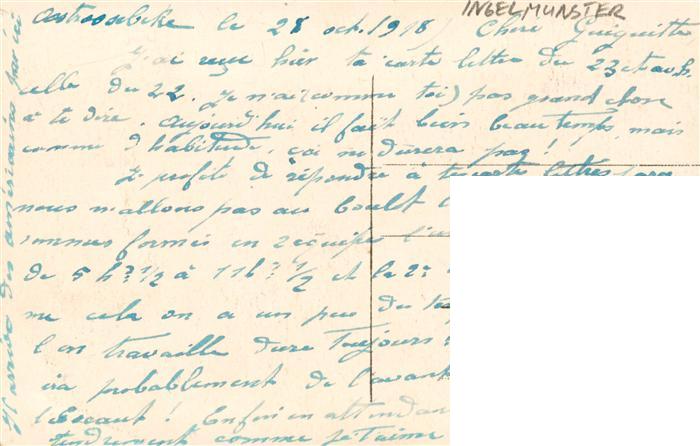 INGELMUNSTER
Oostroosebeke le 28 oct. 1918 Chère Guiguitte
J'ai reçu hier ta carte lettre du 23 et
celle du 22. Je n'ai (comme toi) pas grand chose
à te dire. Aujourd'hui il fait bien beau temps, mais
comme d'habitude, ça ne durera pas!
Je profite de répondre à ta carte lettre
nous n'allons pas au boulot
sommes formés en 2 équipes l'u
de 5 h 1/2 à 11 h 1/2 et la 2e
me cela on a un peu du te
l'on travaille dure Toujours
ira probablement de l'avant
l'Escaut! Enfin en attendan
tendrement comme je t'aime
Il arrive des américains par ici